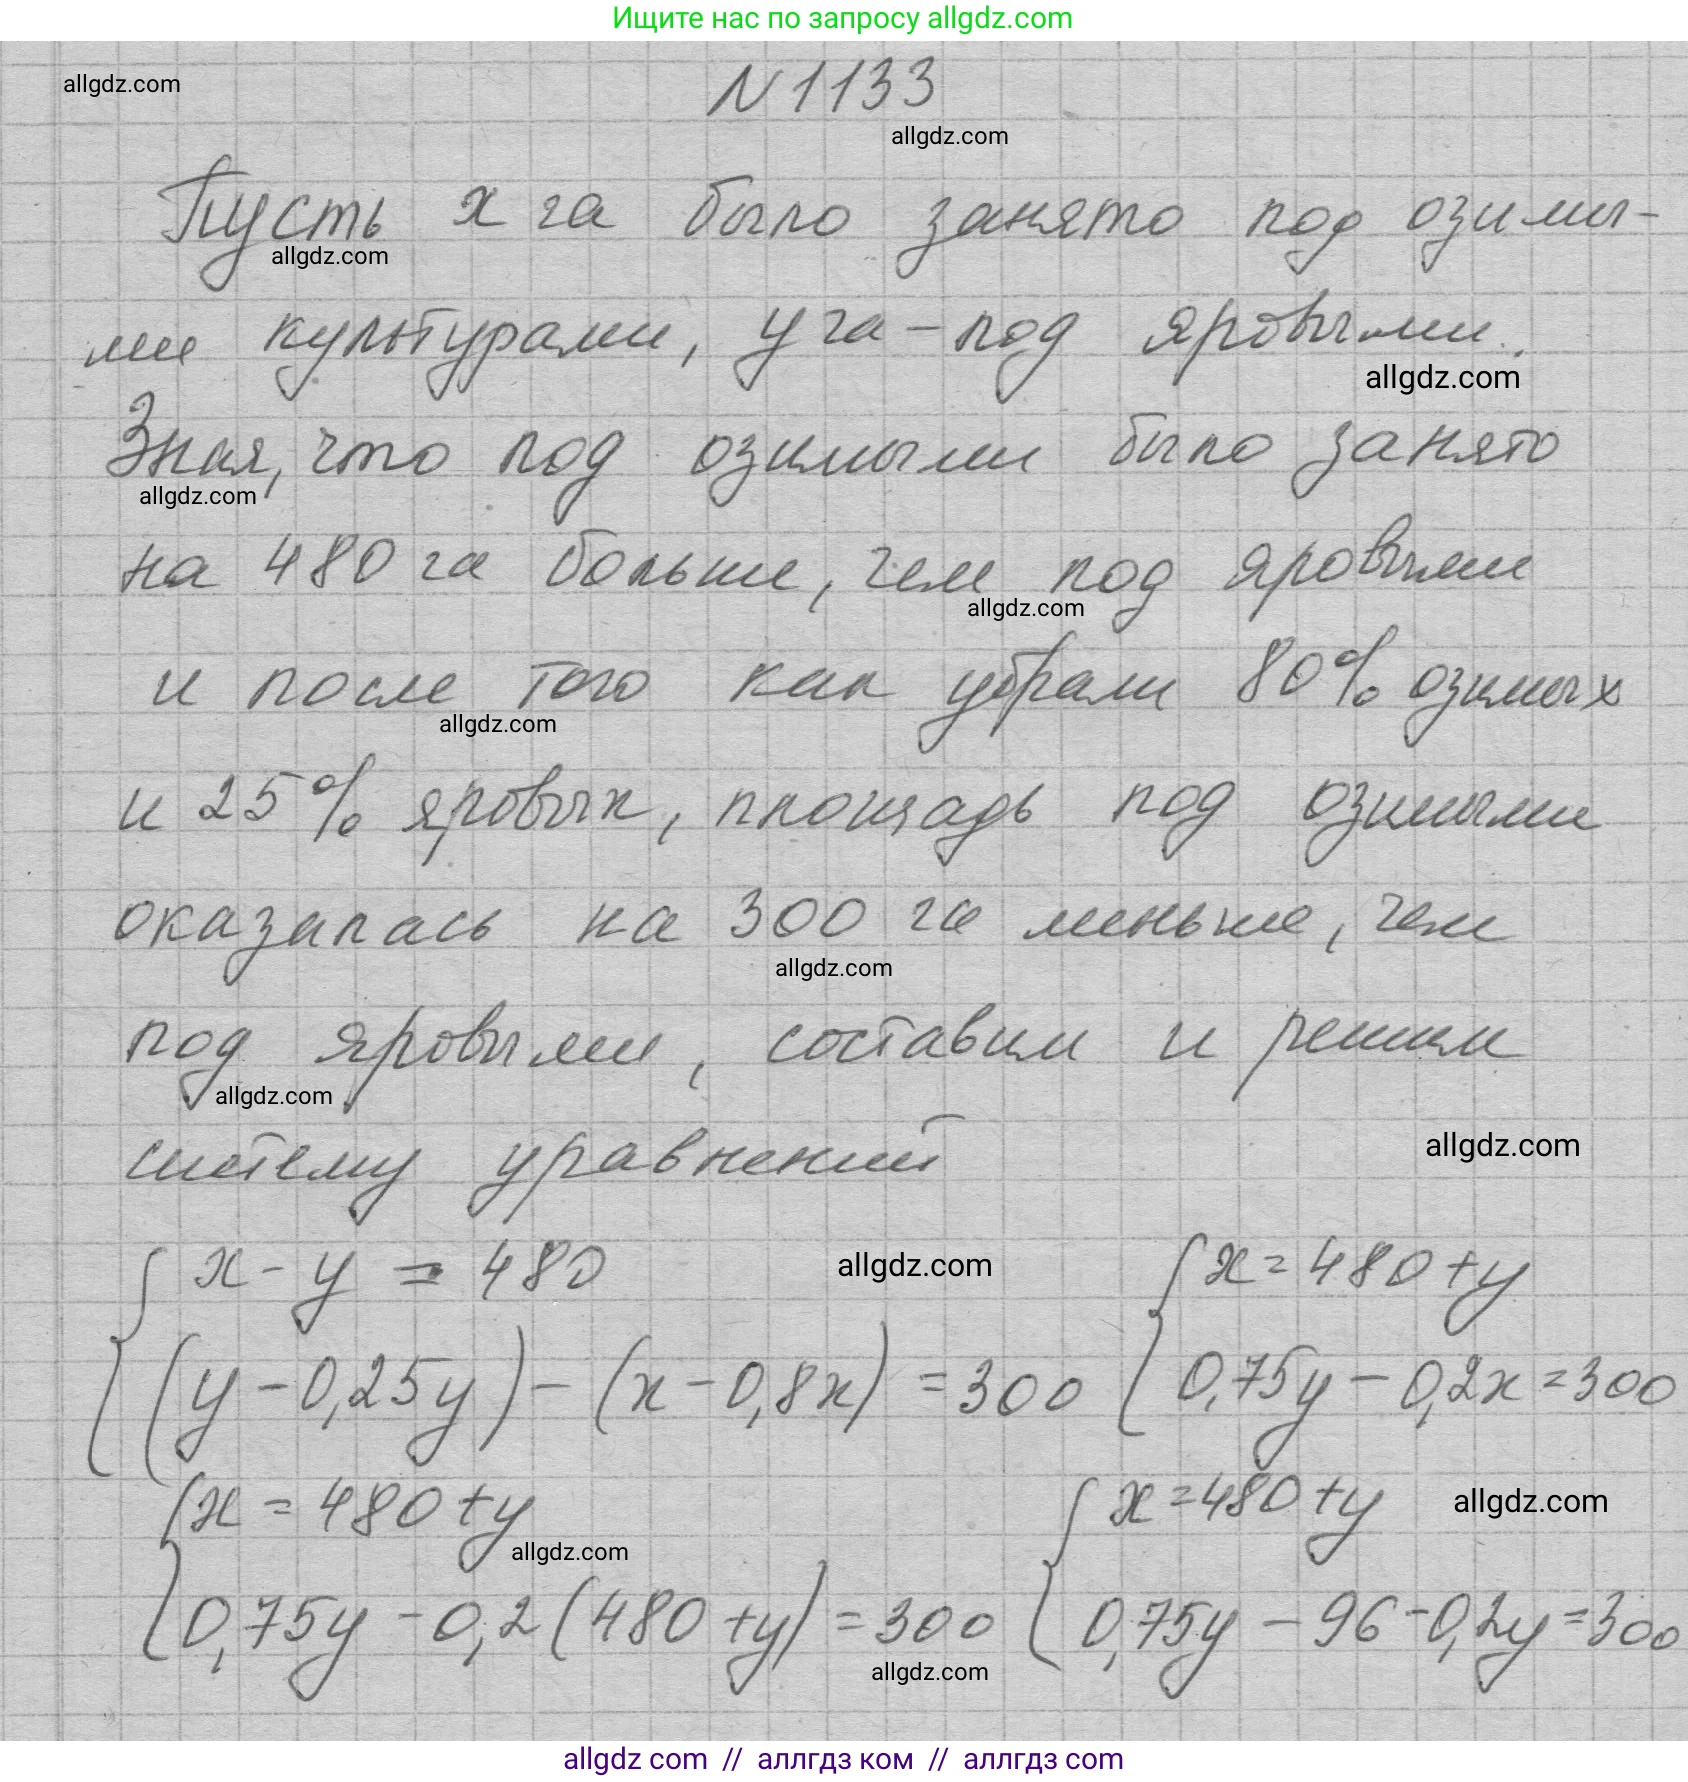 Ищите нас по запросу allgdz.com
allgdz.com
N 1133
allgdz.com
Пусть x га было занято под озимы-
allgdz.com
ми культурами, y га – под яровыми.
allgdz.com
Зная, что под озимыми было занято
allgdz.com
на 480 га больше, чем под яровыми
allgdz.com
и после того как убрали 80% озимых
allgdz.com
и 25% яровых, площадь под озимыми
оказалась на 300 га меньше, чем
allgdz.com
под яровыми, составим и решим
allgdz.com
систему уравнений
allgdz.com
{ x - y = 480 allgdz.com { x = 480 + y
(y - 0,25y) - (x - 0,8x) = 300 0,75y - 0,2x = 300
{ x = 480 + y { x = 480 + y allgdz.com
allgdz.com
0,75y - 0,2(480 + y) = 300 0,75y - 96 - 0,2y = 300
allgdz.com
allgdz com // аллгдз ком // аллгдз com